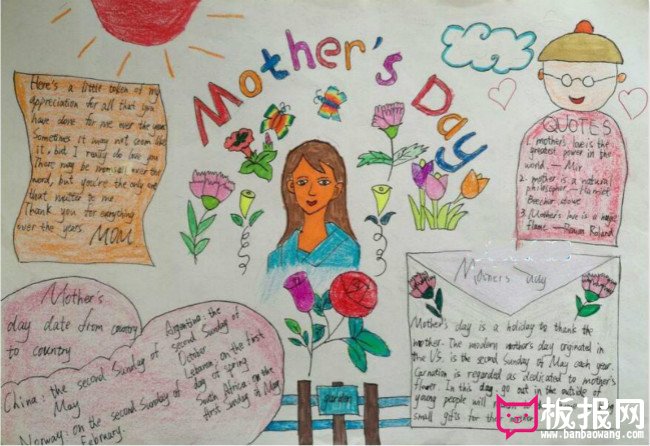 Mother's Day
Here's a little token of my
appreciation for all that you
have done for me over the years
Sometimes it may not seem like
it, but I really do love you
There may be
word, but you're the only one
that matter to me
Thank you for everything
over the years MOM
QUOTES
1. mother's love is the
greatest power in the
world. — Mir
2. mother is a natural
philosopher. — Harriet
Beecher stowe
3. Mother's love is a huge
flame. — Roman Roland
Mother's
day date from country
to country
China: the second Sunday of
May
Norway: on the second Sunday of
February.
Argentina: the
second Sunday of
October
Lebanon: on the first
day of spring
South Africa: on the
first Sunday of May
garden
Mother's day
Mother's day is a holiday to thank the
mother. The modern mother's day originated in
the US. is the second Sunday of May each year.
Carnation is regarded as dedicated to mother's
flower. In this day, go out in the outside of
young people will
small gifts for their mother
板报网
www.banbaowang.com